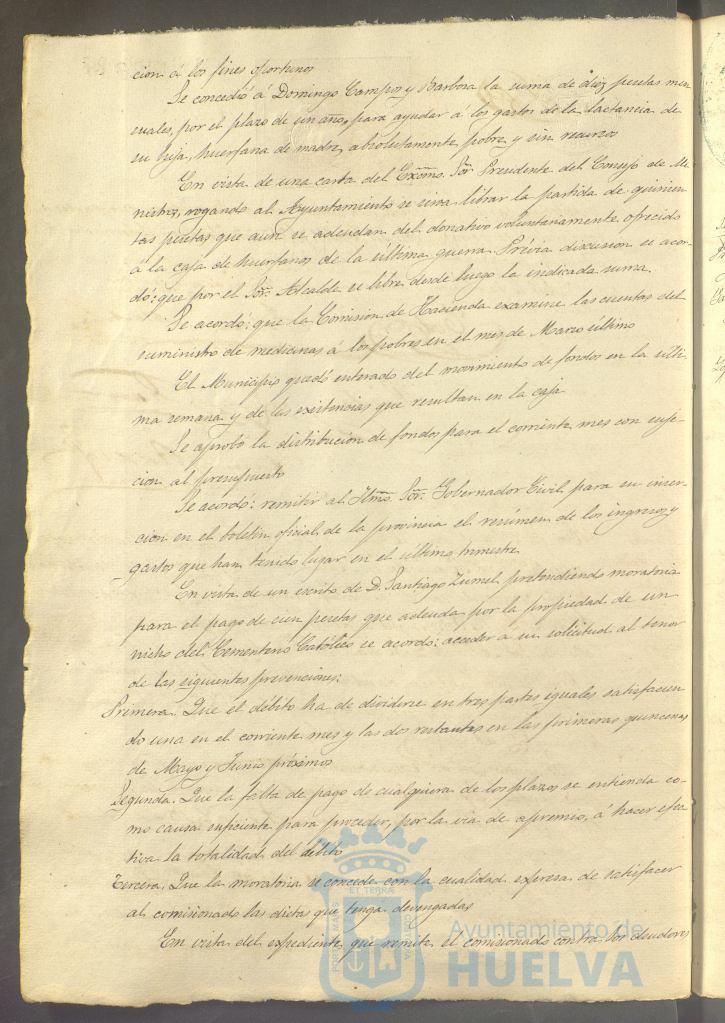 cion á los fines oportunos
Se concedió á Domingo Campos y Barbosa la suma de diez pesetas men
suales, por el plazo de un año, para ayudar á los gastos de la lactancia de
su hija, huerfana de madre, absolutamente pobre y sin recursos
En vista de una carta del Exmo. Sor. Presidente del Consejo de Mi
nistros, rogando al Ayuntamiento se sirva librar la partida de quinien
tas pesetas que aun se adeudan del donativo voluntariamente ofrecido
á la caja de huerfanos de la última guerra. Previa discusion se acor
dó: que por el Sor. Alcalde se libre desde luego la indicada suma.
Se acordó: que la Comision de Hacienda examine las cuentas del
suministro de medicinas á los pobres en el mes de Marzo último
El Municipio quedó enterado del movimiento de fondos en la últi-
ma semana y de las existencias que resultan en la caja
Se aprobó la distribucion de fondos para el corriente mes con suje-
cion al presupuesto
Se acordó: remitir al Iltmo. Sor. Gobernador Civil para su inser-
cion en el boletin oficial de la provincia el resúmen de los ingresos y
gastos que han tenido lugar en el último trimestre
En vista de un escrito de D. Santiago Zumel pretendiendo moratoria
para el pago de cien pesetas que adeuda por la propiedad de un
nicho del Cementerio Católico se acordó: acceder a su solicitud al tenor
de las siguientes prevenciones:
Primera. Que el débito ha de dividirse en tres partes iguales satisfacien
do una en el corriente mes y las dos restantes en las primeras quincenas
de Mayo y Junio próximos
Segunda. Que la falta de pago de cualquiera de los plazos se entienda co-
mo causa suficiente para proceder, por la via de apremio, á hacer efec
tiva la totalidad del débito
Tercera. Que la moratoria se concede con la cualidad espresa de satisfacer
al comisionado las dietas que tenga devengadas
En vista del expediente que remite el comisionado contra los deudores
PORTUS MARIS ET TERRÆ CUSTODIA
Ayuntamiento de
HUELVA